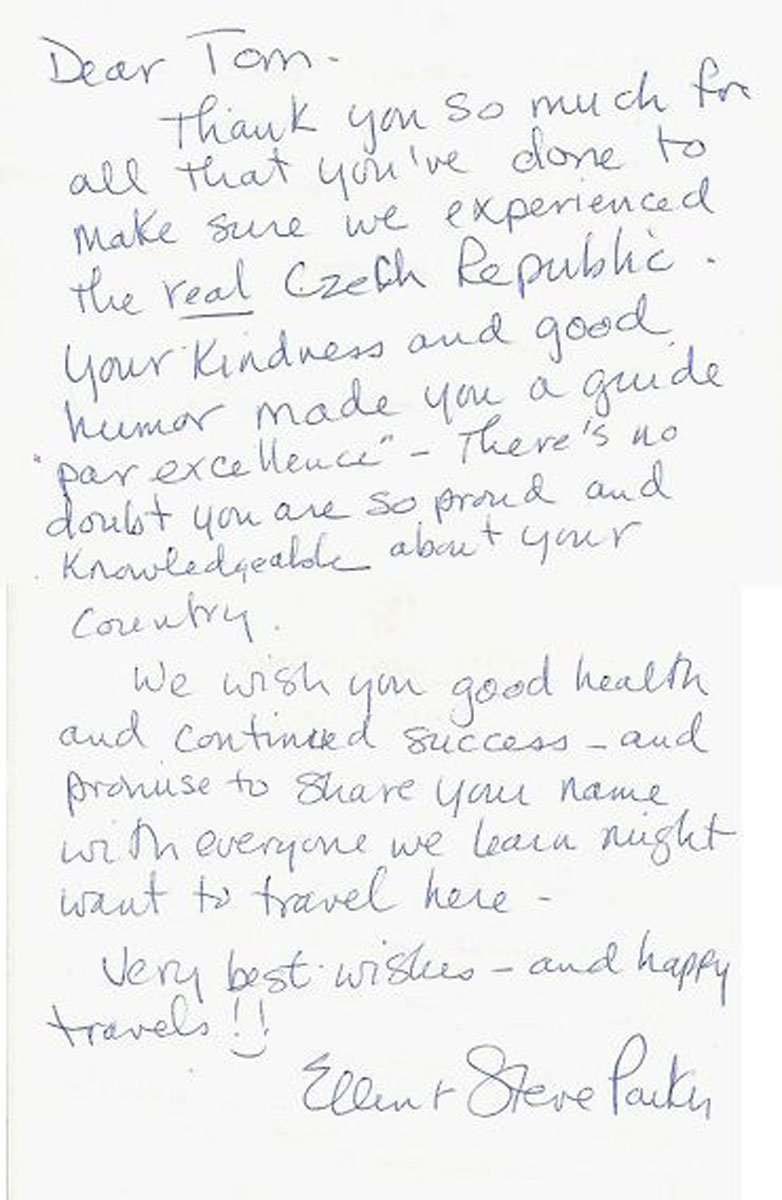 Dear Tom-
Thank you so much for
all that you've done to
make sure we experienced
the real Czech Republic.
Your kindness and good
humor made you a guide
"par excellence" - There's no
doubt you are so proud and
knowledgeable about your
country.
We wish you good health
and continued success - and
promise to share your name
with everyone we learn might
want to travel here -
Very best wishes - and happy
travels!!
Ellen + Steve Parker